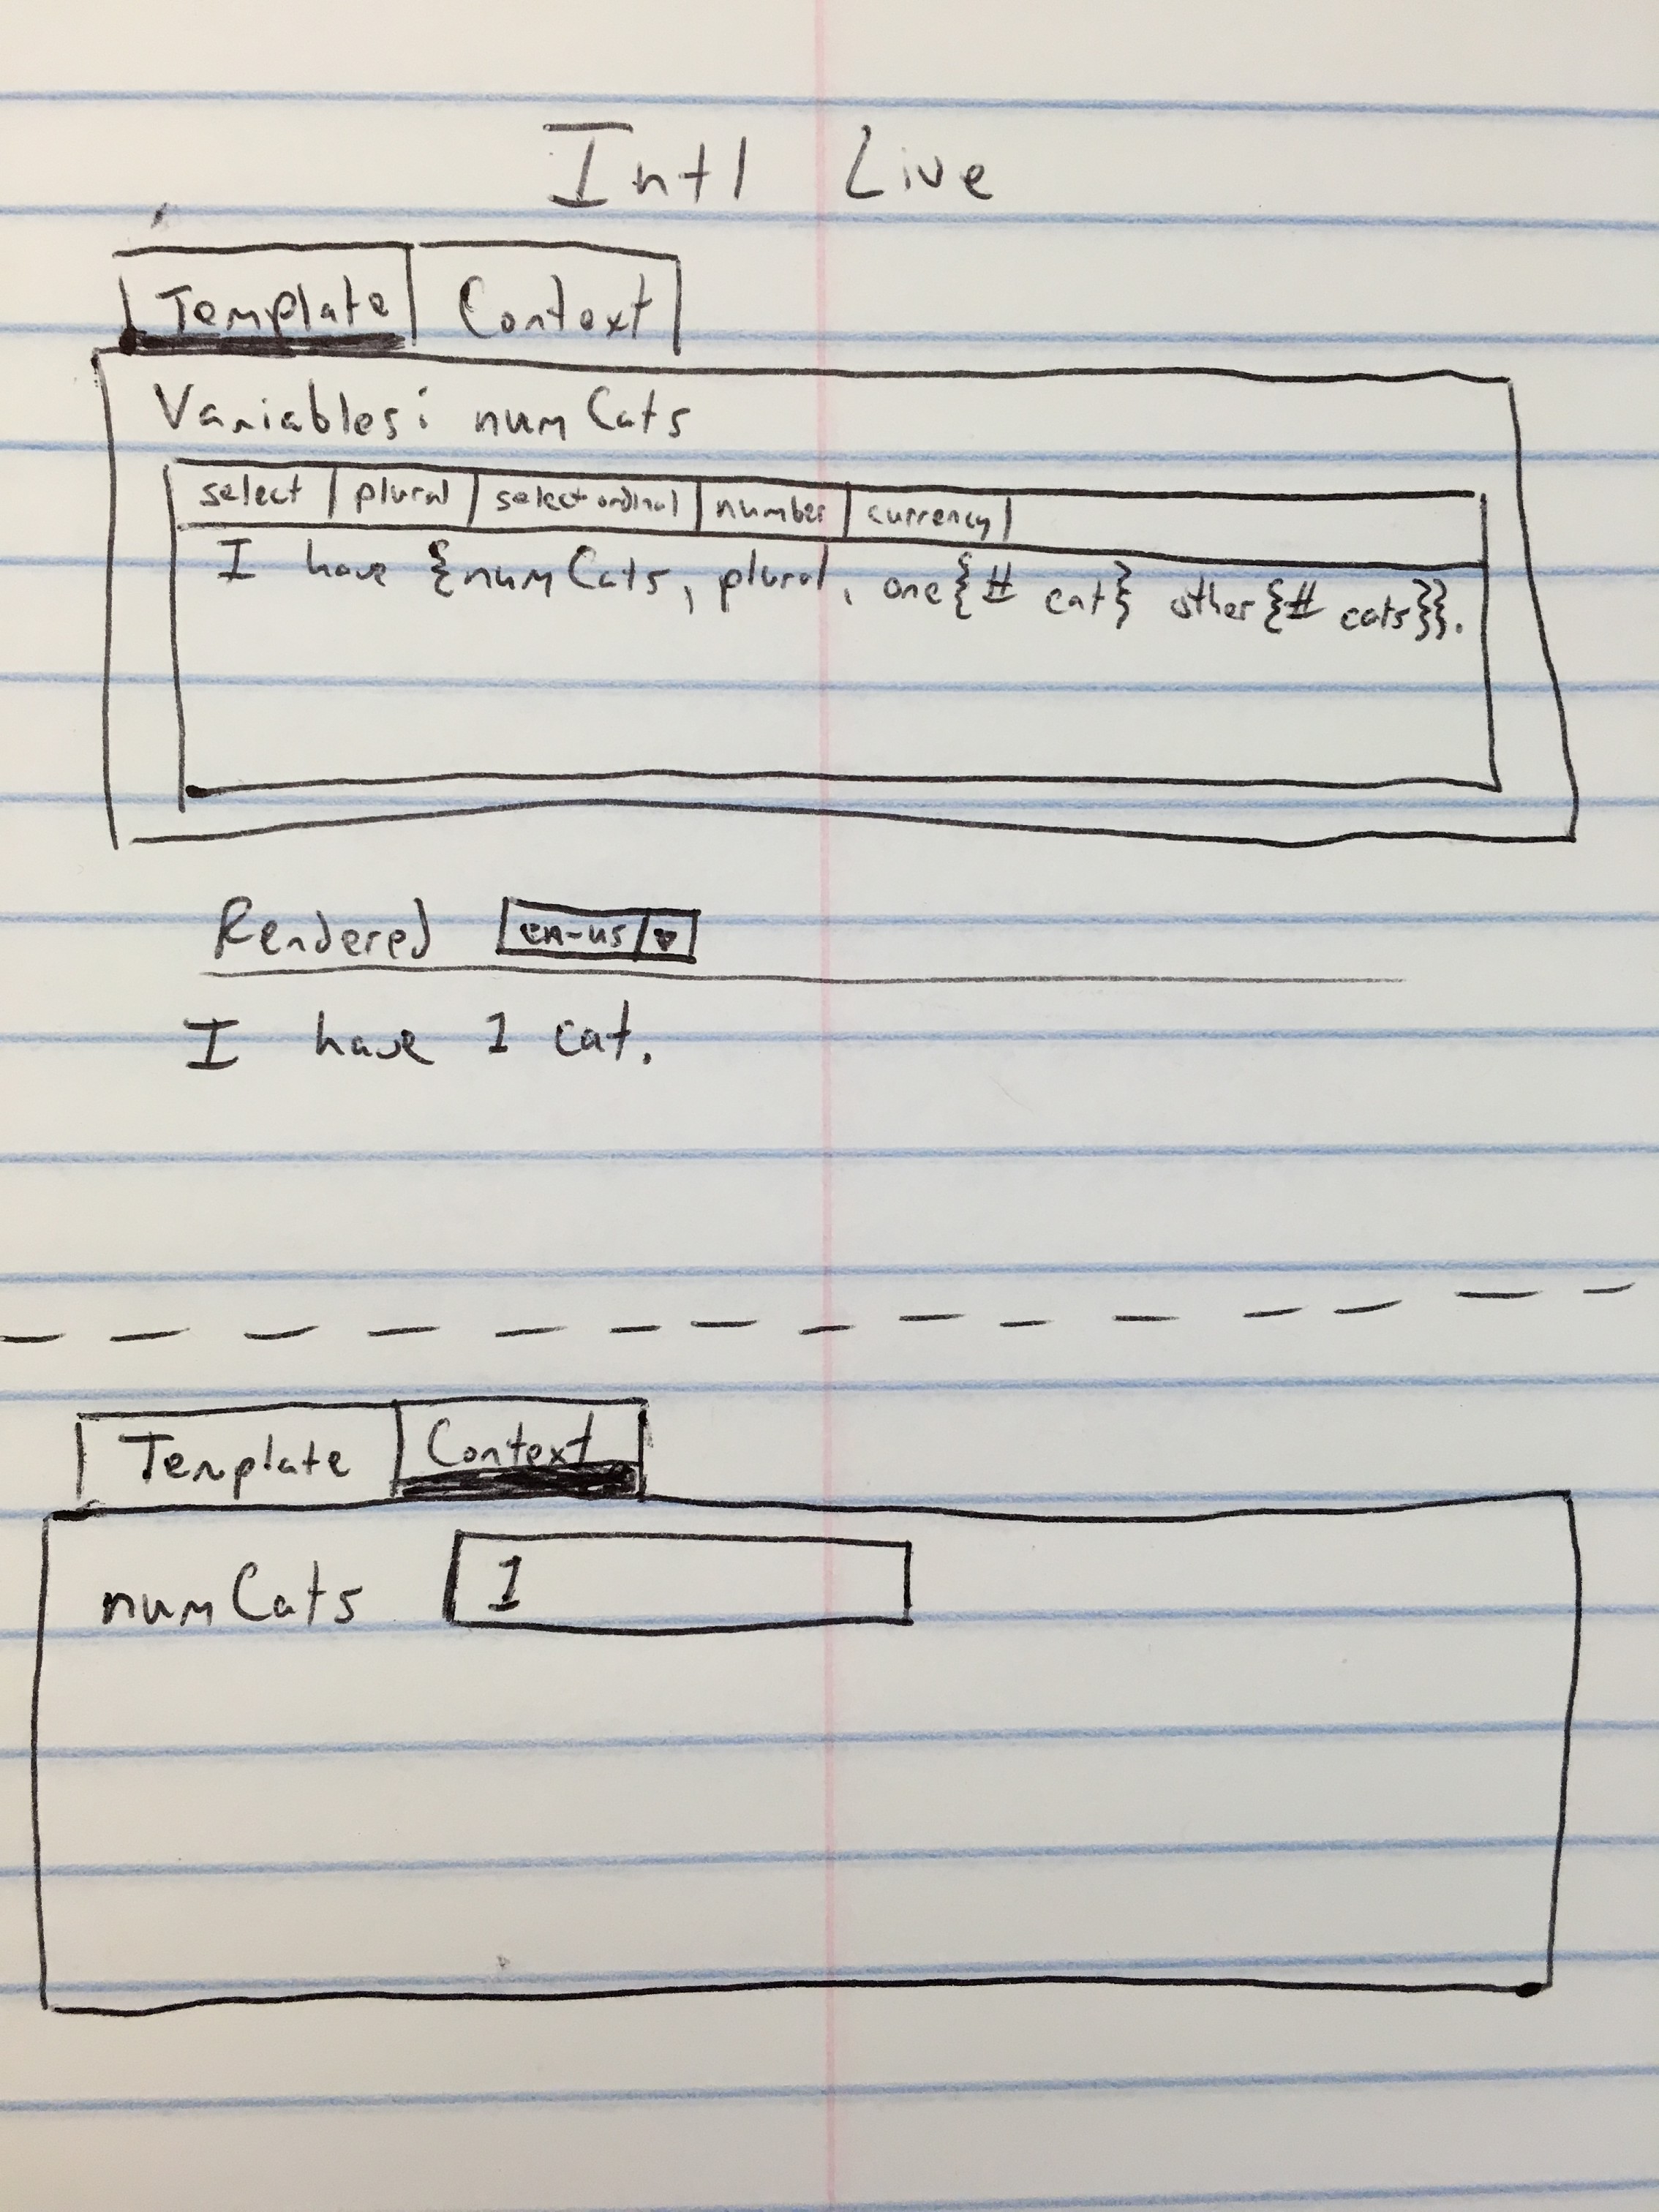 Intl Live
Template Context
Variables: numCats
select plural selectordinal number currency
I have {numCats, plural, one{# cat} other{# cats}}.
Rendered en-us
I have 1 cat.
Template Context
numCats 1